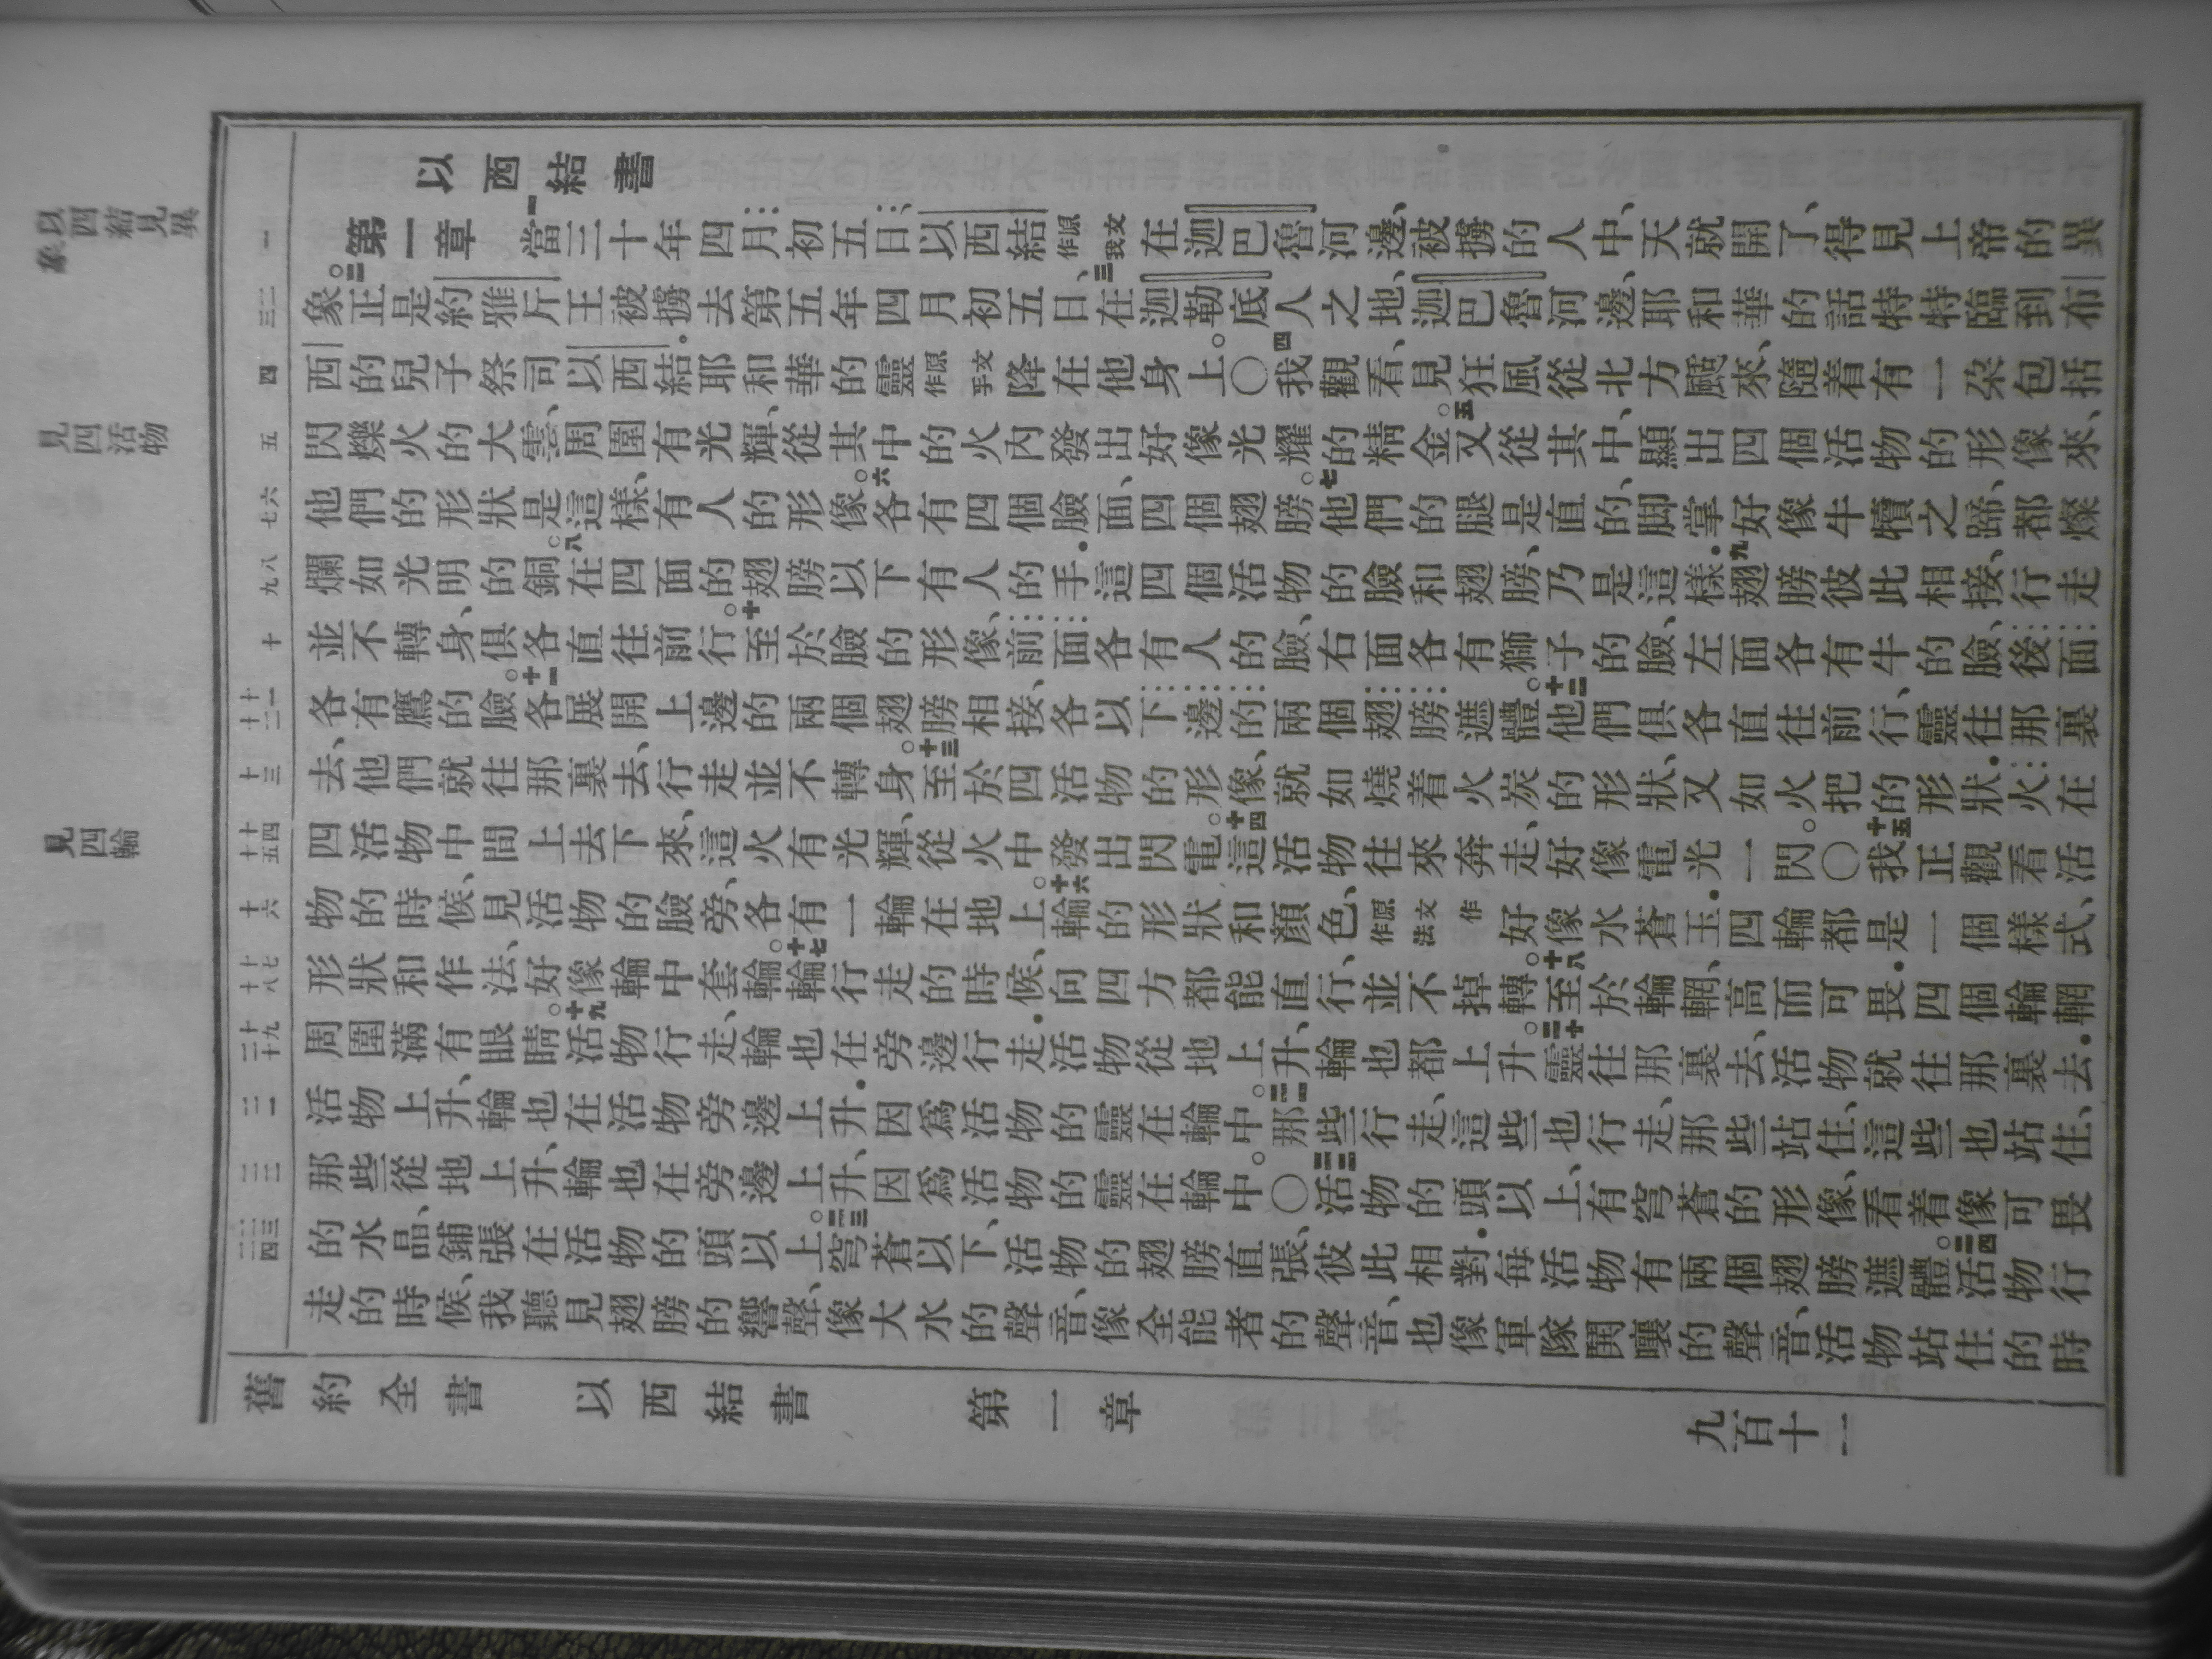 以西結書
以西結見異象
見四活物
見四輪
一
二三
四
五
六七
八九
十
十一十二
十三
十四十五
十六
十七十八
十九二十
二一
二二
二三二四
第一章 一當三十年四月初五日、以西結原文作我在迦巴魯河邊、被擄的人中、天就開了、得見上帝的異
象。二正是約雅斤王被擄去第五年四月初五日、三在迦勒底人之地、迦巴魯河邊、耶和華的話特特臨到布
西的兒子祭司以西結．耶和華的靈原文作手降在他身上。○四我觀看、見狂風從北方颳來、隨着有一朶包括
閃爍火的大雲、周圍有光輝、從其中的火內發出好像光耀的精金。五又從其中、顯出四個活物的形像來、
他們的形狀是這樣、有人的形像。六各有四個臉面、四個翅膀。七他們的腿是直的、脚掌好像牛犢之蹄、都燦
爛如光明的銅。八在四面的翅膀以下有人的手．這四個活物的臉和翅膀、乃是這樣．九翅膀彼此相接、行走
並不轉身、俱各直往前行。十至於臉的形像、前面各有人的臉、右面各有獅子的臉、左面各有牛的臉、後面
各有鷹的臉。十一各展開上邊的兩個翅膀相接、各以下邊的兩個翅膀遮體。十二他們俱各直往前行、靈往那裏
去、他們就往那裏去、行走並不轉身。十三至於四活物的形像、就如燒着火炭的形狀、又如火把的形狀．火在
四活物中間上去下來、這火有光輝、從火中發出閃電。十四這活物往來奔走、好像電光一閃。○十五我正觀看活
物的時候、見活物的臉旁、各有一輪在地上。十六輪的形狀和顏色、原文作作法好像水蒼玉．四輪都是一個樣式、
形狀和作法、好像輪中套輪。十七輪行走的時候、向四方都能直行、並不掉轉。十八至於輪輞、高而可畏．四個輪輞
周圍滿有眼睛。十九活物行走、輪也在旁邊行走．活物從地上升、輪也都上升。二十靈往那裏去、活物就往那裏去．
活物上升、輪也在活物旁邊上升．因爲活物的靈在輪中。二一那些行走、這些也行走、那些站住、這些也站住、
那些從地上升、輪也在旁邊上升、因爲活物的靈在輪中。○二二活物的頭以上、有穹蒼的形像、看着像可畏
的水晶、鋪張在活物的頭以上。二三穹蒼以下、活物的翅膀直張、彼此相對．每活物有兩個翅膀遮體。二四活物行
走的時候、我聽見翅膀的響聲、像大水的聲音、像全能者的聲音、也像軍隊鬨嚷的聲音、活物站住的時
舊約全書 以西結書 第一章 九百十一